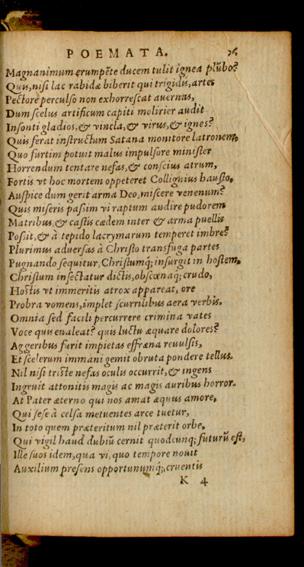 POEMATA. 76
Magnanimum erumpẽte ducem tulit ignea plũbo?
Quis, nisi lac rabidæ biberit qui trigidis, artes
Pectore perculso non exhorrescat auernas,
Dum scelus artificum capiti molirier audit
Insonti gladios, & vincla, & virus, & ignes?
Quis ferat instructum Satana monitore latronem,
Quo furtim potuit malus impulsore minister
Horrendum tentare nefas, & conscius atrum,
Fortis vt hoc mortem oppeteret Collignius haustu,
Auspice dum gerit arma Deo, miscere venenum?
Quis miseris passim vi raptum audire pudorem
Matribus, & castis cædem inter & arma puellis
Possit, & à tepido lacrymarum temperet imbre?
Plurimus aduersas à Christo transfuga partes
Pugnando sequitur, Christumq; insurgit in hostem,
Christum insectatur dictis, obscœnaq; crudo,
Hostis vt immeritis atrox appareat, ore
Probra vomens, implet scurrilibus aera verbis.
Omnia sed facili percurrere crimina vates
Voce quis enaleat? quis luctu æquare dolores?
Aggeribus furit impietas effræna reuulsis,
Et scelerum immani gemit obruta pondere tellus.
Nil nisi triste nefas oculis occurrit, & ingens
Ingruit attonitis magis ac magis auribus horror.
At Pater æterno qui nos amat æquus amore,
Qui sese à celsa metuentes arce tuetur,
In toto quem præteritum nil præterit orbe,
Qui vigil haud dubiũ cernit quodcunq; futurũ est,
Ille suos idem, qua vi, quo tempore nouit
Auxilium præsens opportunumq;, cruentis
K 4